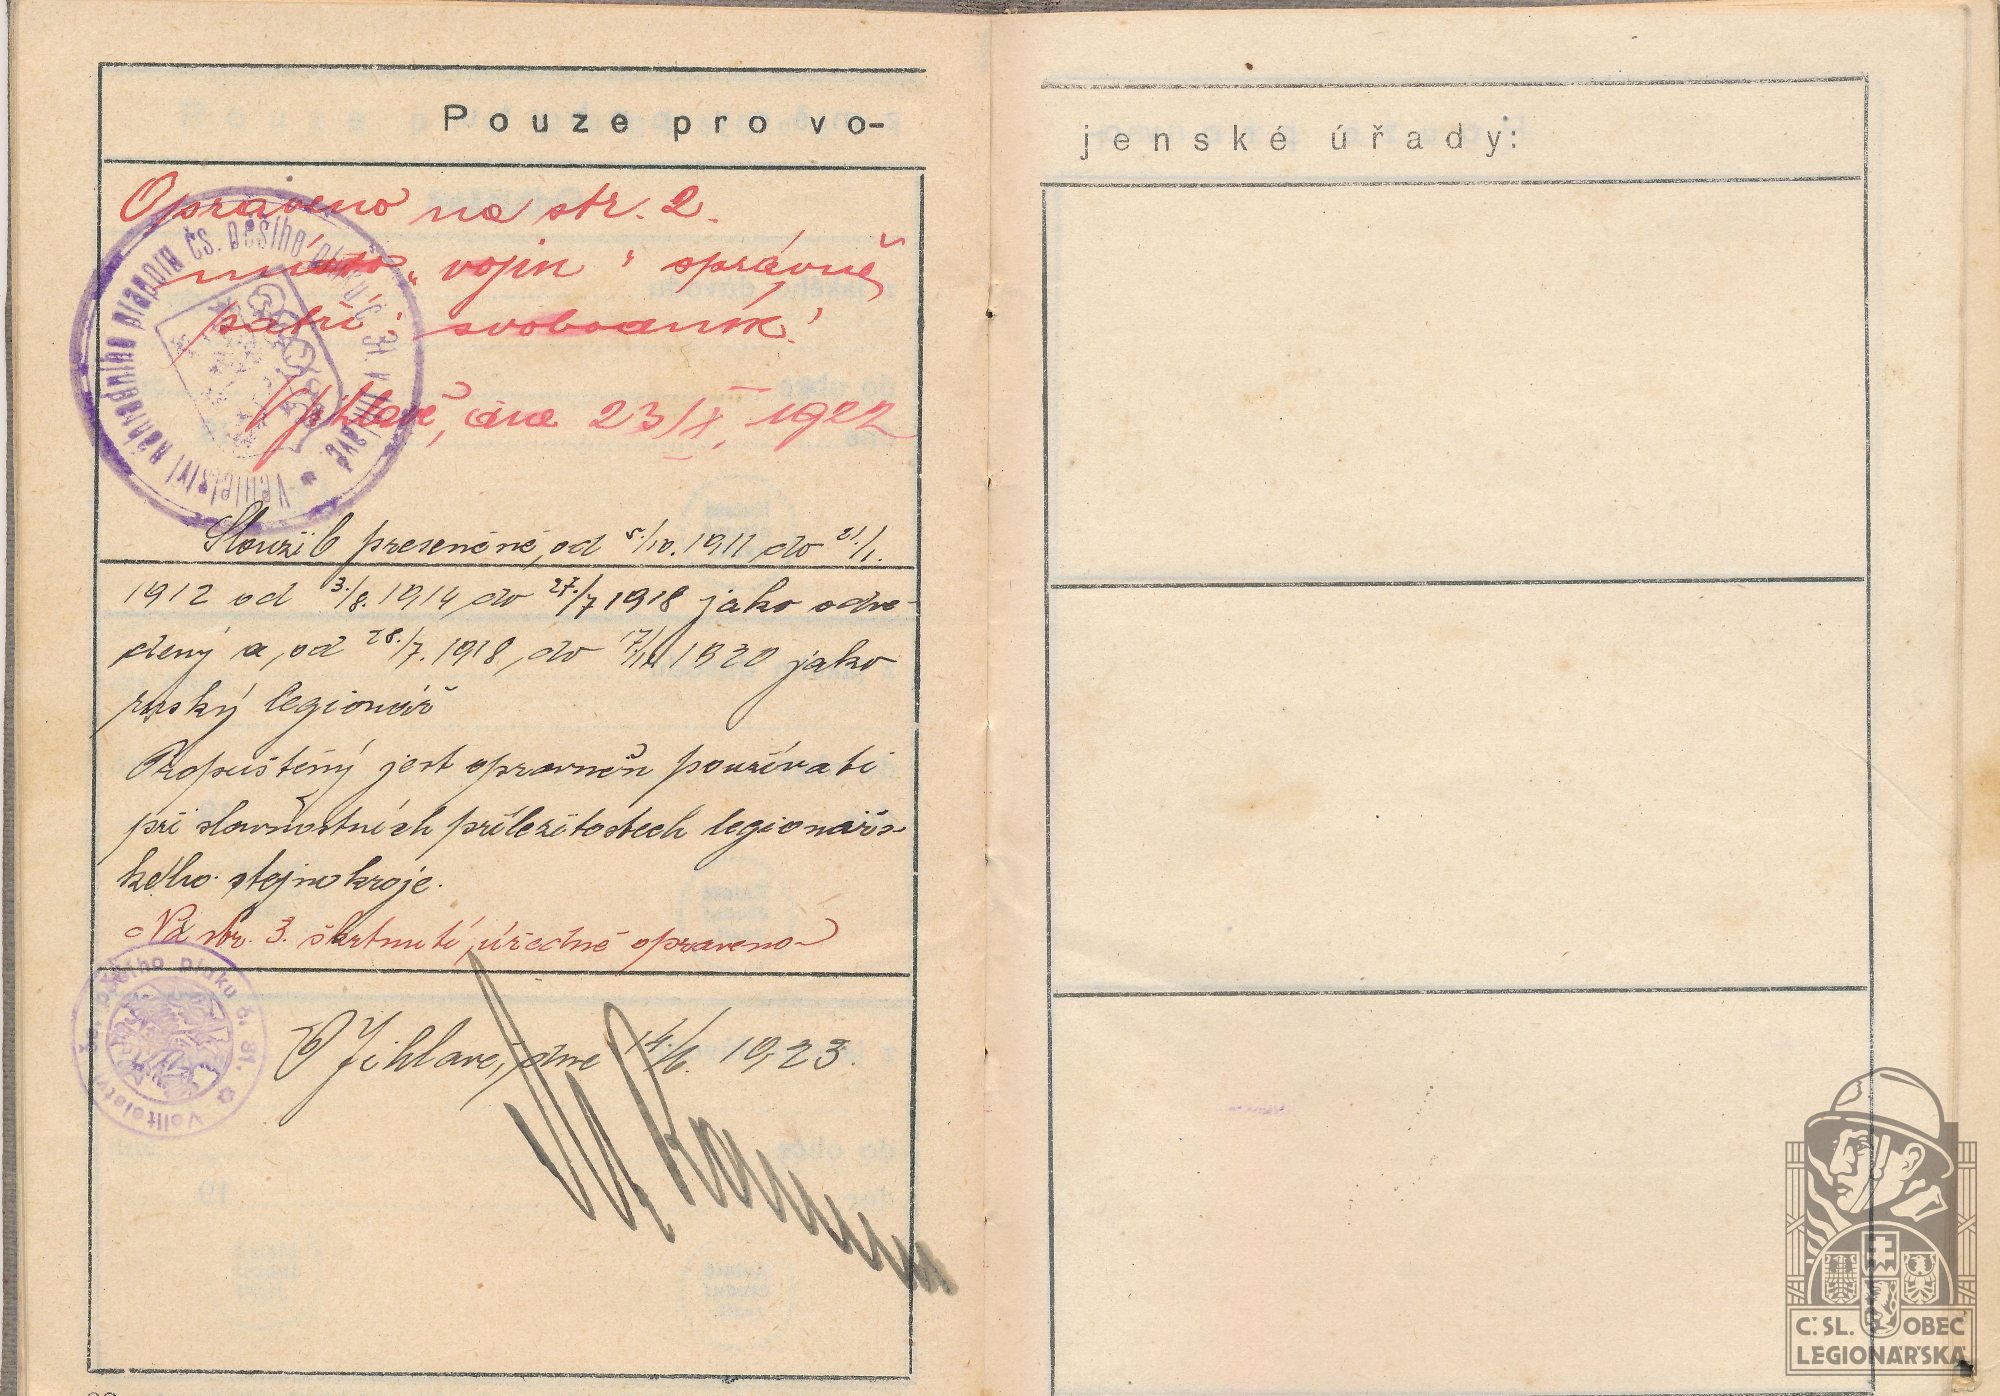 Pouze pro vo-
jenské úřady:
Opraveno na str. 2.
místo „vojín" správně
patří „svobodník"
V Jihlavě, dne 23/X. 1922
Velitelství náhradního praporu čs. pěšího pluku č. 31 v Jihlavě
Sloužil presenčně, od 5./10. 1911, do 21./1.
1912 od 3./8. 1914, do 27./7 1918 jako odve-
dený a, od 28./7. 1918, do 1920 jako
ruský legionář
Propuštěný jest oprávněn používati
při slavnostních příležitostech legionářs-
kého stejnokroje.
Na str. 3. škrtnutí, úředně opraveno
Velitelství čs. pěšího pluku č. 31.
V Jihlavě, dne 14./6. 1923.
Č. SL. OBEC
LEGIONÁŘSKÁ